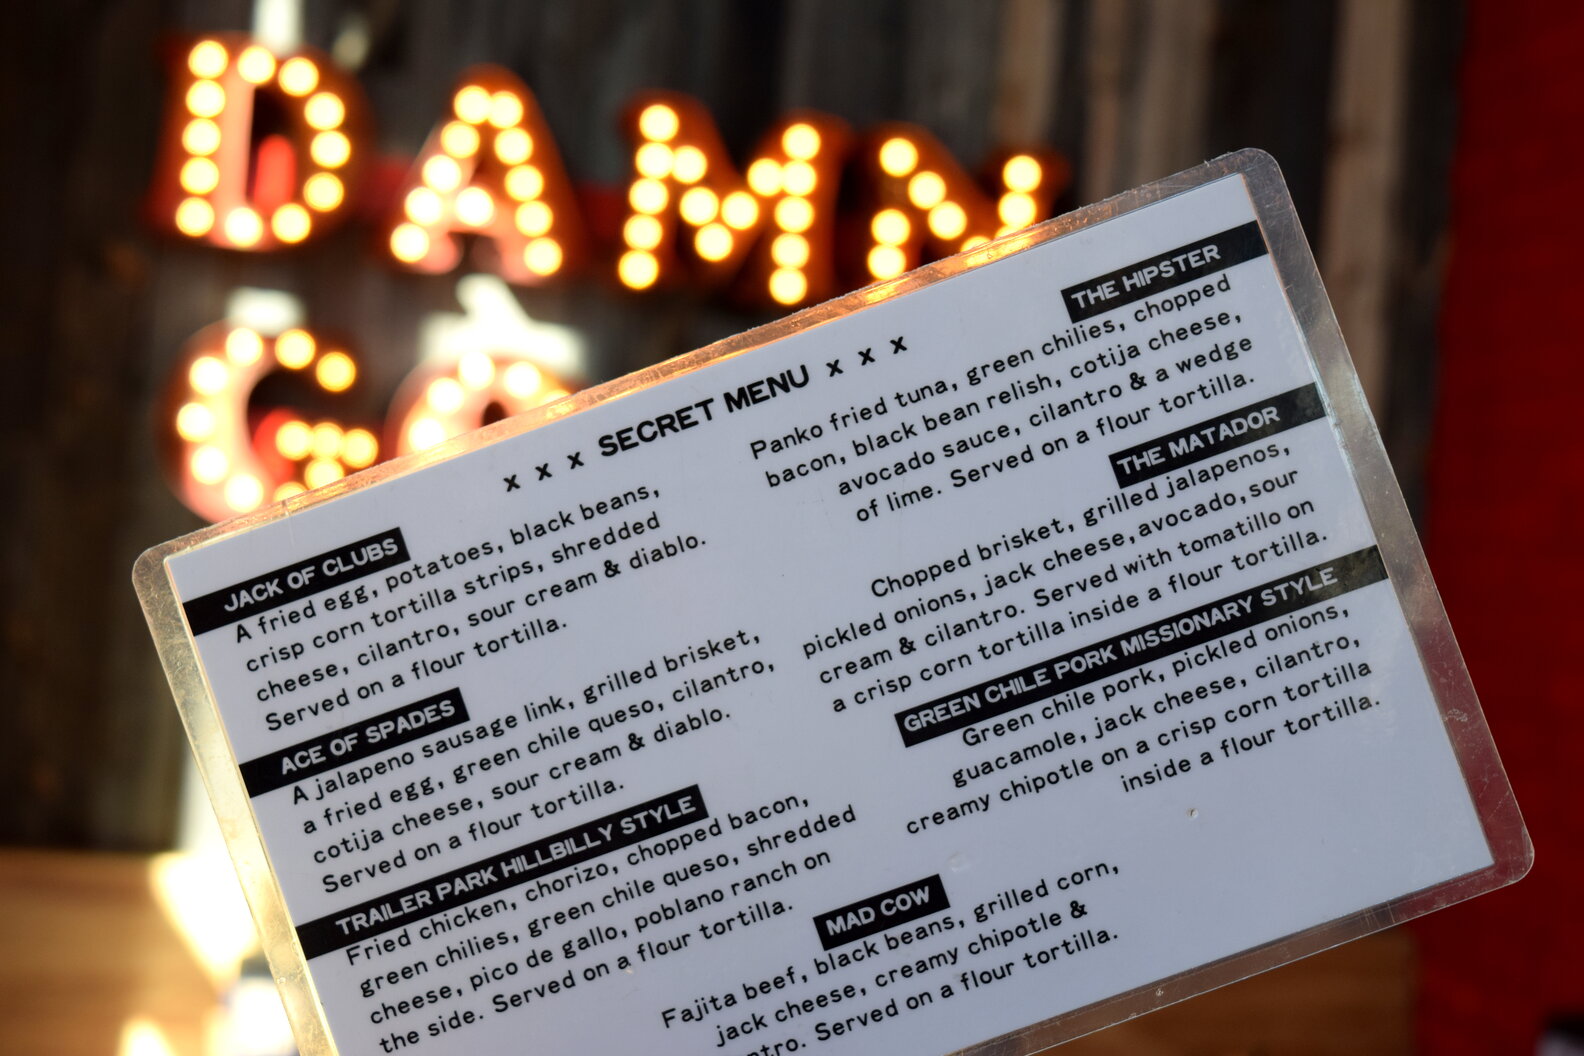 DAMN
GO
x x x SECRET MENU x x x
JACK OF CLUBS
A fried egg, potatoes, black beans,
crisp corn tortilla strips, shredded
cheese, cilantro, sour cream & diablo.
Served on a flour tortilla.
ACE OF SPADES
A jalapeno sausage link, grilled brisket,
a fried egg, green chile queso, cilantro,
cotija cheese, sour cream & diablo.
Served on a flour tortilla.
TRAILER PARK HILLBILLY STYLE
Fried chicken, chorizo, chopped bacon,
green chilies, green chile queso, shredded
cheese, pico de gallo, poblano ranch on
the side. Served on a flour tortilla.
THE HIPSTER
Panko fried tuna, green chilies, chopped
bacon, black bean relish, cotija cheese,
avocado sauce, cilantro & a wedge
of lime. Served on a flour tortilla.
THE MATADOR
Chopped brisket, grilled jalapenos,
pickled onions, jack cheese, avocado, sour
cream & cilantro. Served with tomatillo on
a crisp corn tortilla inside a flour tortilla.
GREEN CHILE PORK MISSIONARY STYLE
Green chile pork, pickled onions,
guacamole, jack cheese, cilantro,
creamy chipotle on a crisp corn tortilla
inside a flour tortilla.
MAD COW
Fajita beef, black beans, grilled corn,
jack cheese, creamy chipotle &
ntro. Served on a flour tortilla.